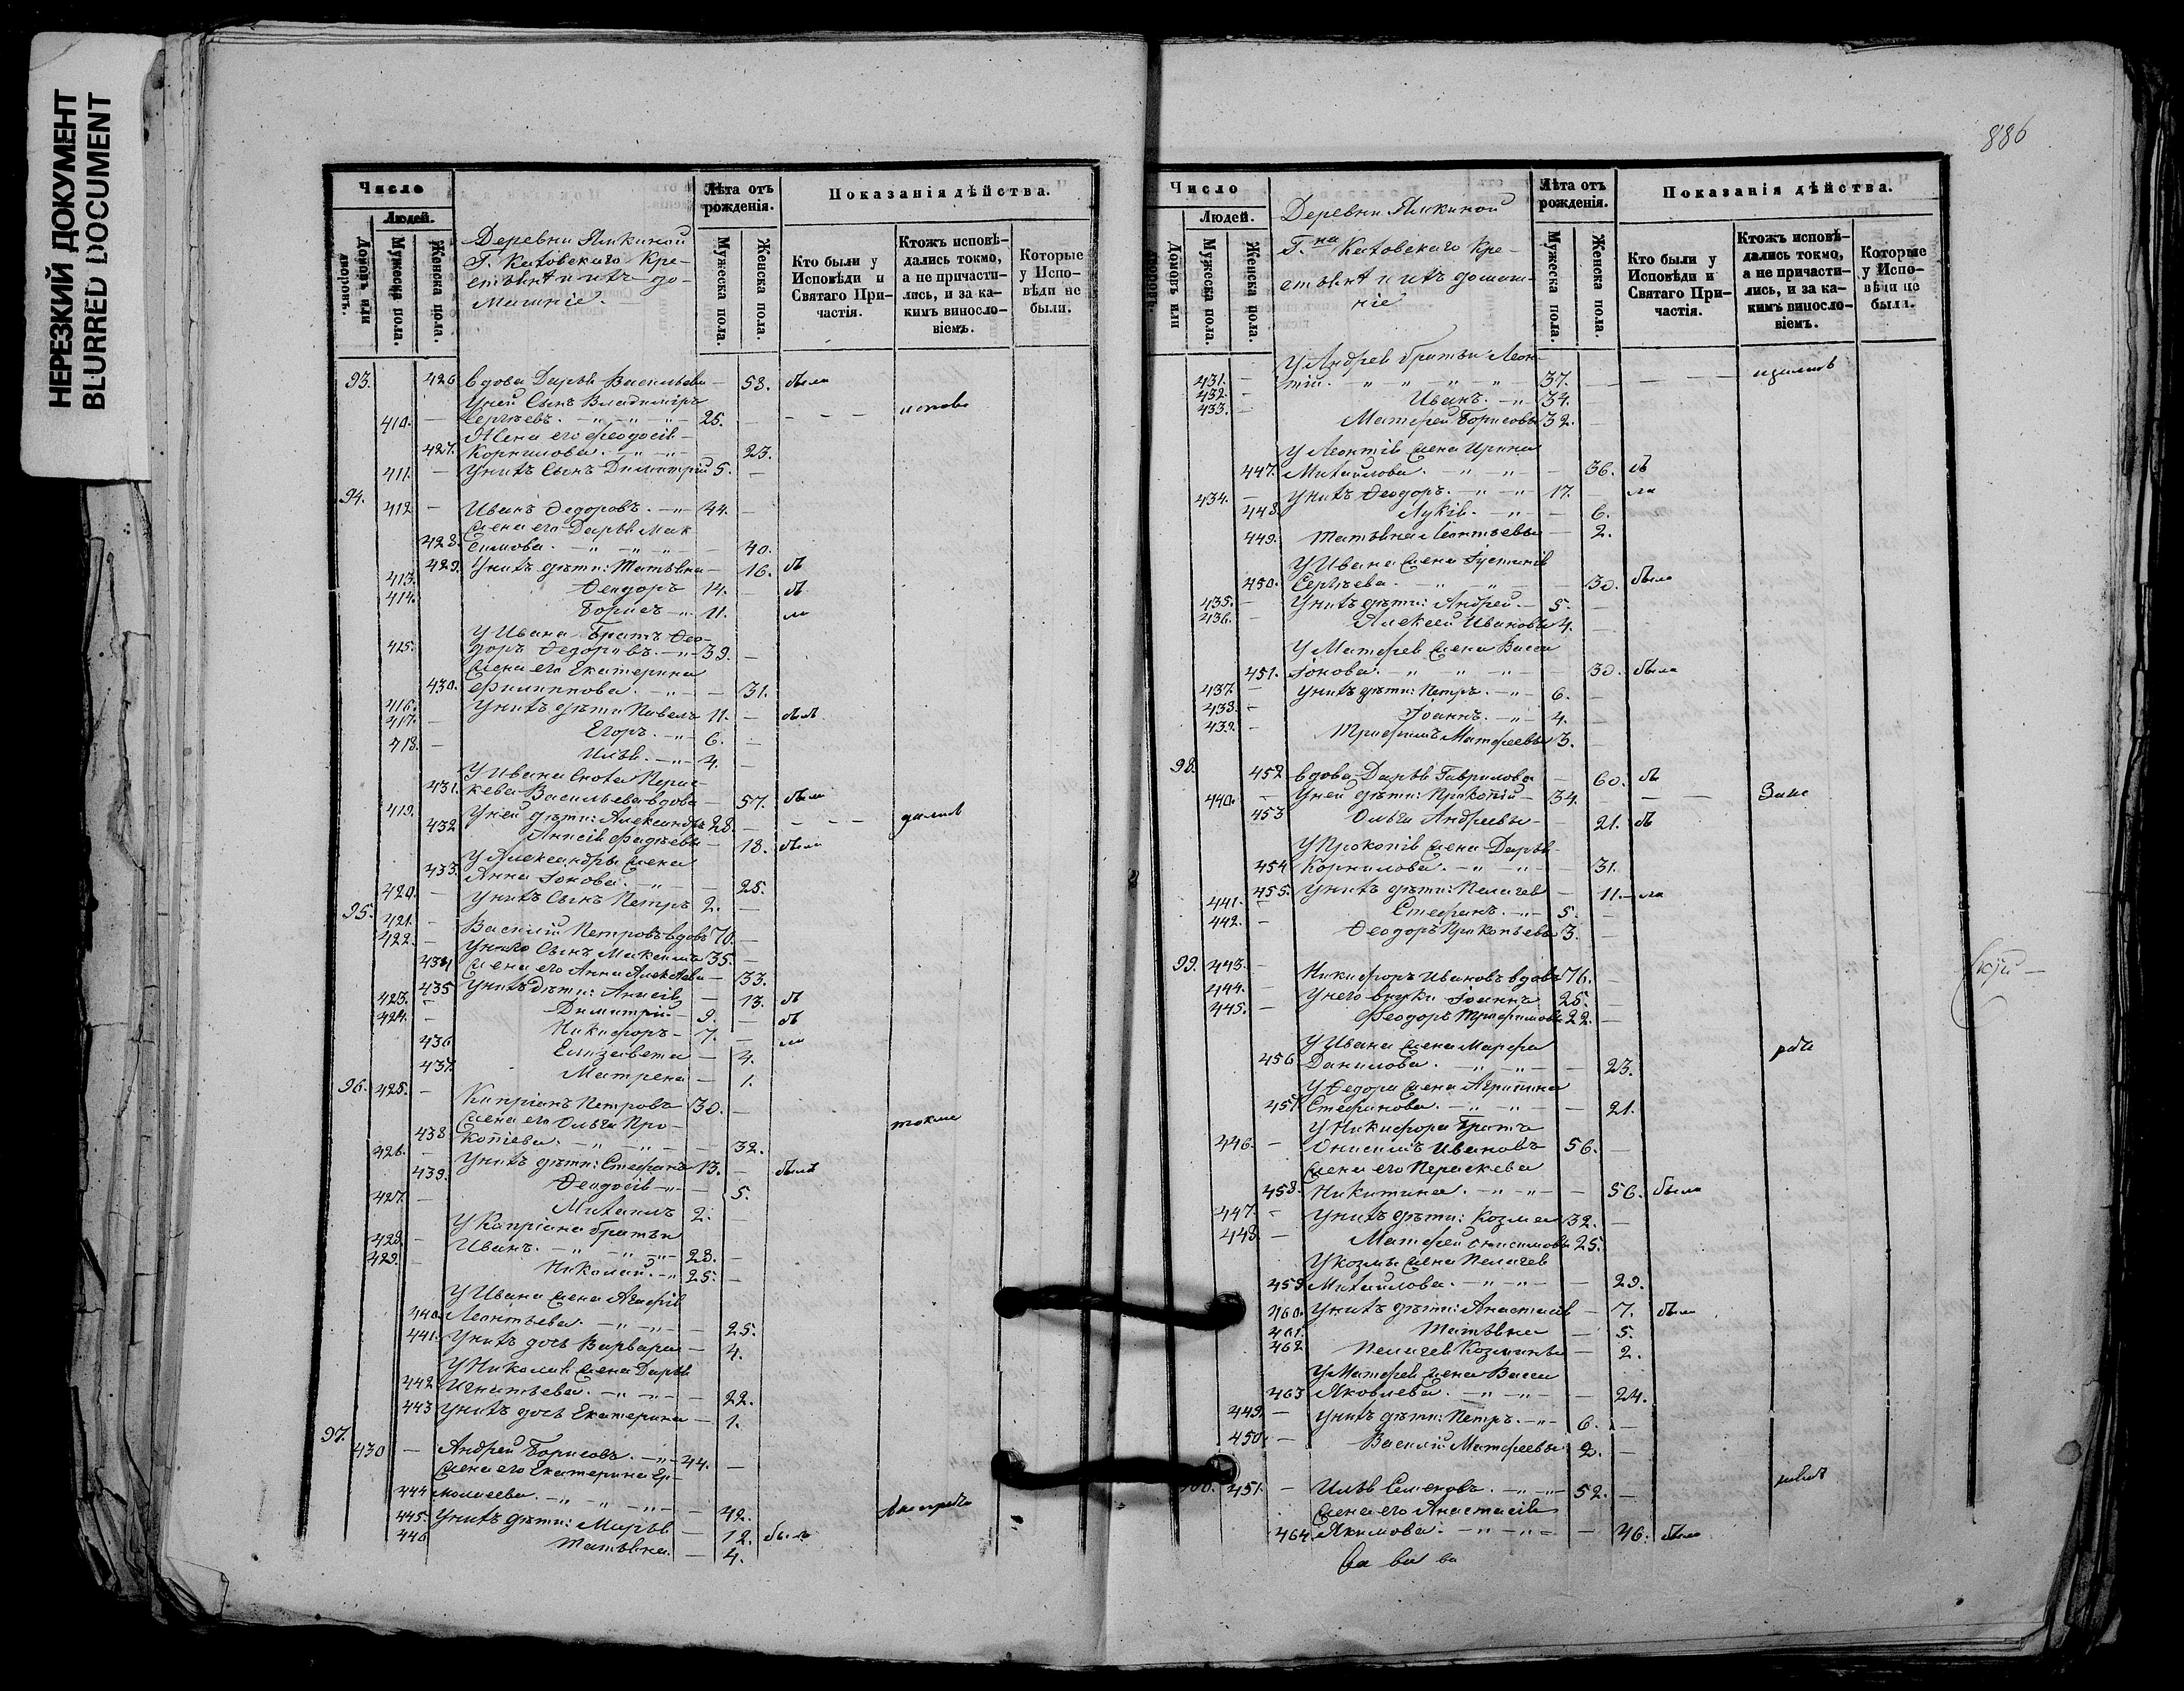 НЕРЕЗКИЙ ДОКУМЕНТ
BLURRED DOCUMENT
Число
Людей.
Домовъ или дворовъ.
Мужеска пола.
Женска пола.
Деревни
Г. Кат
Лѣта отъ рожденія.
Мужеска пола.
Женска пола.
Показанія дѣйства.
Кто были у Исповѣди и Святаго Причастія.
Ктожъ исповѣдались токмо, а не причастились, и за какимъ винословіемъ.
Которые у Исповѣди не были.
93. 426 вдова Дарья Васильева — 58. была
У ней Сынъ Владимiръ
410. — Сергѣевъ 25. —
Жена его Феодосія
427. Корнилова. 23.
411. — У нихъ Сынъ Димитрій 5. —
94. 412. — Иванъ Федоровъ. 44. —
жена его Дарья Мак
428. симова. 40.
429. У нихъ дѣти: Татьяна — 16. бы
413. Феодоръ 14. — бы
414. Борисъ 11. ли
У Ивана Братъ Фео-
415. доръ Федоровъ. 39. —
жена его Екатерина
430. Филиппова. 31.
416. У нихъ дѣти Павелъ 11. — былъ
417. — Егоръ. 6. —
418. — Илья. 4. —
У Ивана Сноха Парас-
431. кева Васильева вдова — 57. была
419. У ней дѣти: Александръ 28. —
432 Анисія Фадѣевы — 18. была
У Александра жена
433. Анна Іонова. 25.
420. — У нихъ Сынъ Петръ 2. —
95. 421. — Василій Петровъ вдовъ 70. —
422. — У него Сынъ Максимъ 35. —
434 жена его Анна Алексѣева — 33.
435 У нихъ дѣти: Анисія — 13. бы
423. — Димитрій 9. — бы
424. — Никифоръ — 7. — ли
436 Елизавета — 4.
437. Матрена — 1.
96. 425. — Кипріанъ Петровъ 30. —
жена его Ольга Про-
438 копіева. 32. токмо
426. — У нихъ дѣти: Стефанъ 13. — былъ
439. Феодосія — 5.
427. — Михаилъ 2. —
У Кипріана братья
428. — Иванъ. 28. —
429. — Николай. 25. —
У Ивана жена Агафія
440. Леонтьева. 25.
441. У нихъ дочь Варвара — 4.
У Николая жена Дарья
442 Игнатьева. 22.
443 У нихъ дочь Екатерина — 1.
97. 430 — Андрей Борисовъ. 44. —
жена его Екатерина Ер-
444 молаева. 42.
445. У нихъ дѣти: Марья — 12. была
446 Татьяна. — 4.
886
Число
Людей.
Домовъ или дворовъ.
Мужеска пола.
Женска пола.
Деревни
Г.на
Лѣта отъ рожденія.
Мужеска пола.
Женска пола.
Показанія дѣйства.
Кто были у Исповѣди и Святаго Причастія.
Ктожъ исповѣдались токмо, а не причастились, и за какимъ винословіемъ.
Которые у Исповѣди не были.
У Андрея братья Леон-
431. — тій. 37. —
432. — Иванъ. 34. —
433. — Матфей Борисовы 32. —
У Леонтія жена Ирина
447. Михайлова. — 36. бы
434. — У нихъ Феодоръ. 17. — ла
448. Лукія. — 6.
449. Татьяна Леонтьевы — 2.
У Ивана жена Іустинія
450. Сергѣева. 30. была
435. — У нихъ дѣти: Андрей. — 5. —
436. — Алексей Ивановы 4. —
У Матфея жена Васса
451. Іонова. 30. была
437. — У нихъ дѣти: Петръ. 6. —
438. — Іоаннъ. 4. —
439. — Трифилъ Матфеевы 3. —
98. 452 вдова Дарья Гаврилова — 60. бы
440. — У ней дѣти: Прокопій — 34. —
453 Ольга Андреевы — 21. бы
У Прокопія жена Дарья
454 Корнилова. 31.
455. У нихъ дѣти: Пелагея — 11. ла
441. — Стефанъ. 5. —
442. — Феодоръ Прокопьевы 3. —
99. 443. — Никифоръ Ивановъ вдовъ 76. —
444. — У него внуки Іоаннъ 25. —
445. — Феодоръ Трифиловы 22. —
У Ивана жена Марфа
456 Данилова. 23.
У Федора жена Агрипина
457 Стефанова. 21.
У Никифора братъ
446. — Онисимъ Ивановъ 56. —
жена его Параскева
458. Никитина. 56. была
447. — У нихъ дѣти: Козма 32. —
448. — Матфей Онисимовы 25.
У Козмы жена Пелагея
459 Михайлова. 29.
460. У нихъ дѣти: Анастасія — 7. была
461. Татьяна — 5.
462. Пелагея Козмины — 2.
У Матфея жена Васса
463 Яковлева. 24.
449. — У нихъ дѣти: Петръ. 6. —
450. — Василій Матфеевы 2. —
100. 451. — Илья Семеновъ. 52. —
жена его Анастасія
464. Якимова. 46. была